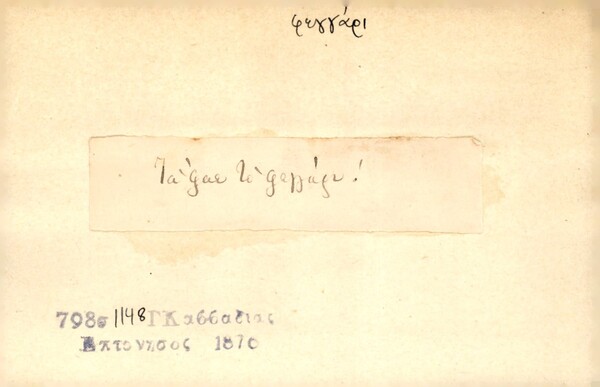 φεγγάρι
Τα᾽φαε το φεγγάρι!
798σ 1148 Γ Καββαδιας
Επτονησος 1870